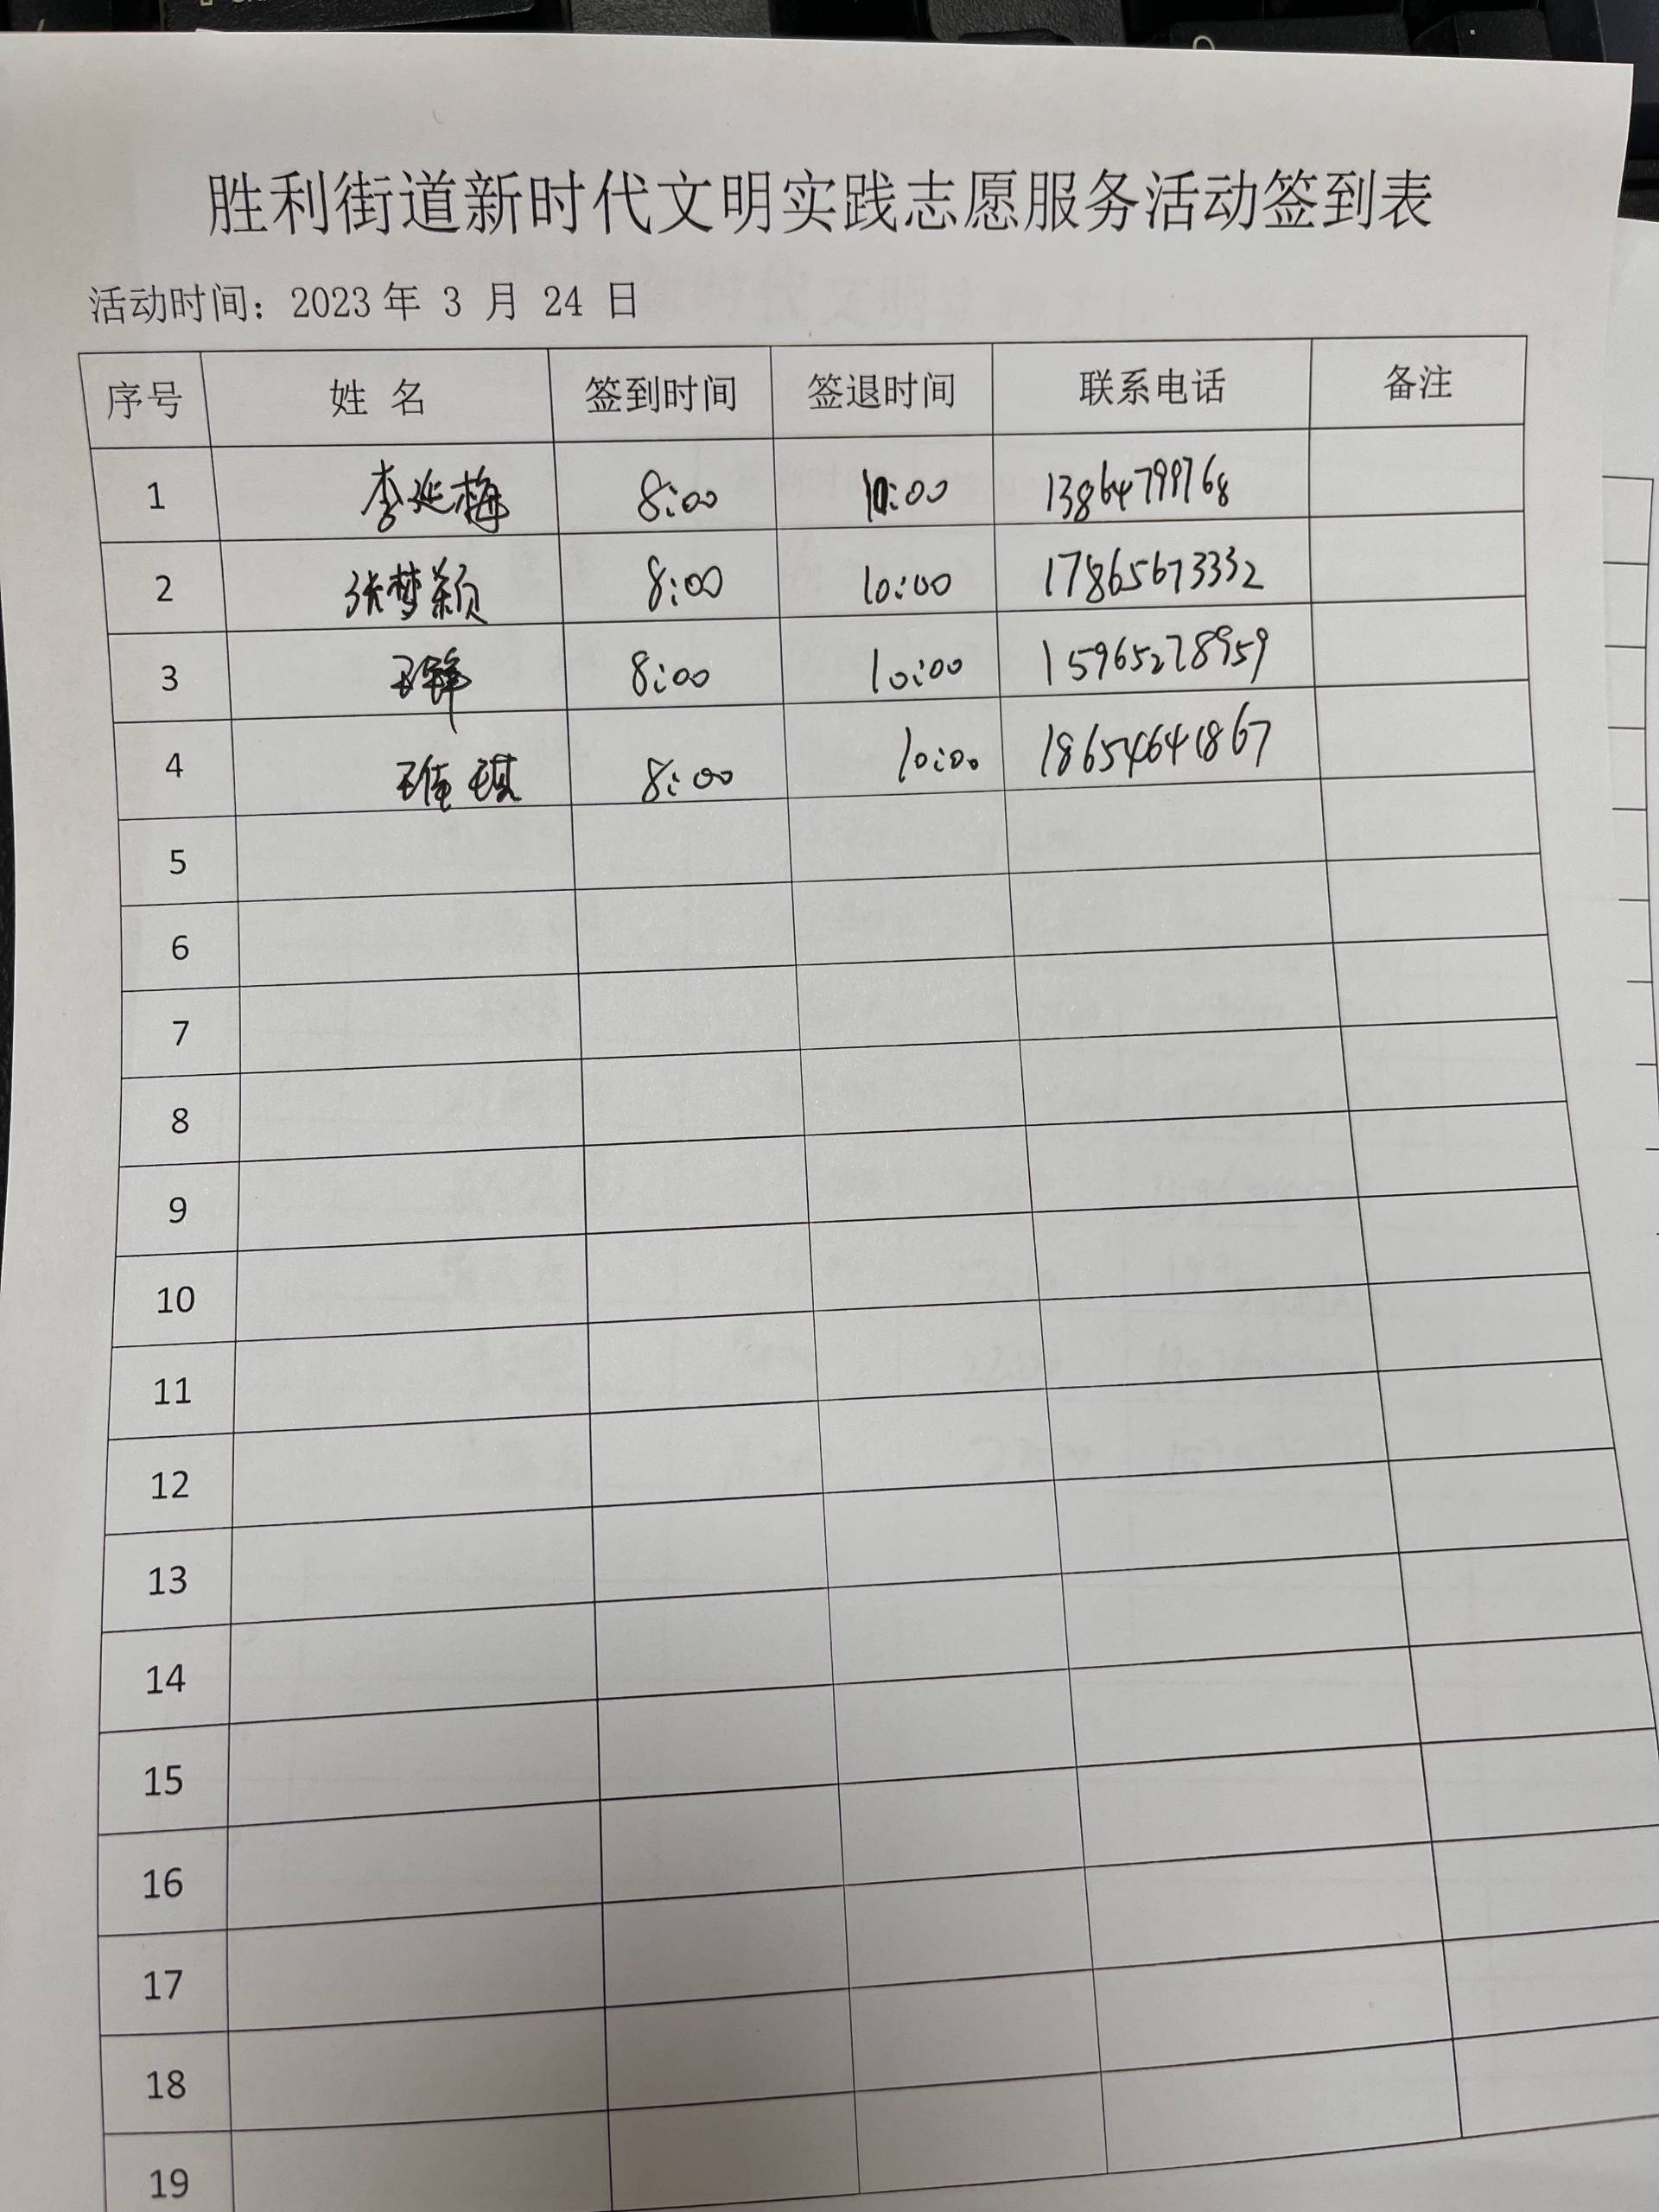 胜利街道新时代文明实践志愿服务活动签到表
活动时间：2023年 3 月 24 日
序号 姓 名 签到时间 签退时间 联系电话 备注
1 李延梅 8:00 10:00 13864799768
2 张梦颖 8:00 10:00 17865673332
3 8:00 10:00 15965278959
4 8:00 10:00 18654641867
5
6
7
8
9
10
11
12
13
14
15
16
17
18
19